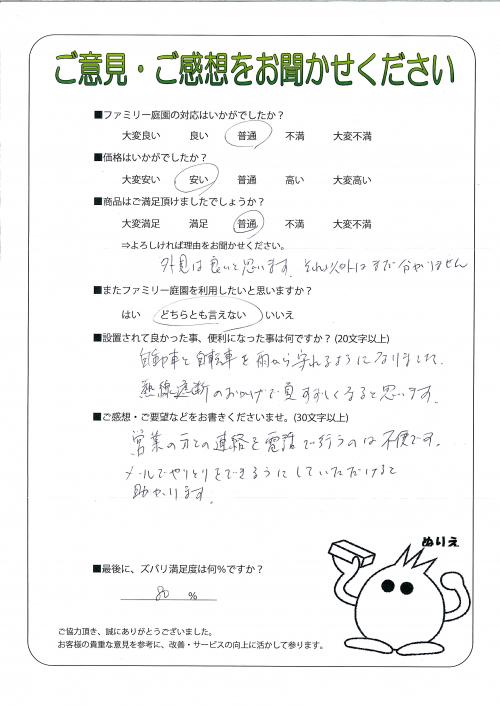 ご意見・ご感想をお聞かせください
■ファミリー庭園の対応はいかがでしたか？
大変良い 良い 普通 不満 大変不満
■価格はいかがでしたか？
大変安い 安い 普通 高い 大変高い
■商品はご満足頂けましたでしょうか？
大変満足 満足 普通 不満 大変不満
⇒よろしければ理由をお聞かせください。
外見は良いと思います。それ以外はまだ分かりません
■またファミリー庭園を利用したいと思いますか？
はい どちらとも言えない いいえ
■設置されて良かった事、便利になった事は何ですか？(20文字以上)
自動車と自転車を雨から守れるようになりました。
熱線遮断のおかげで夏すずしくなると思います。
■ご感想・ご要望などをお書きくださいませ。(30文字以上)
営業の方との連絡を電話で行うのは不便です。
メールでやりとりをできるうにしていただけると
助かります。
ぬりえ
■最後に、ズバリ満足度は何％ですか？
80 %
ご協力頂き、誠にありがとうございました。
お客様の貴重な意見を参考に、改善・サービスの向上に活かして参ります。